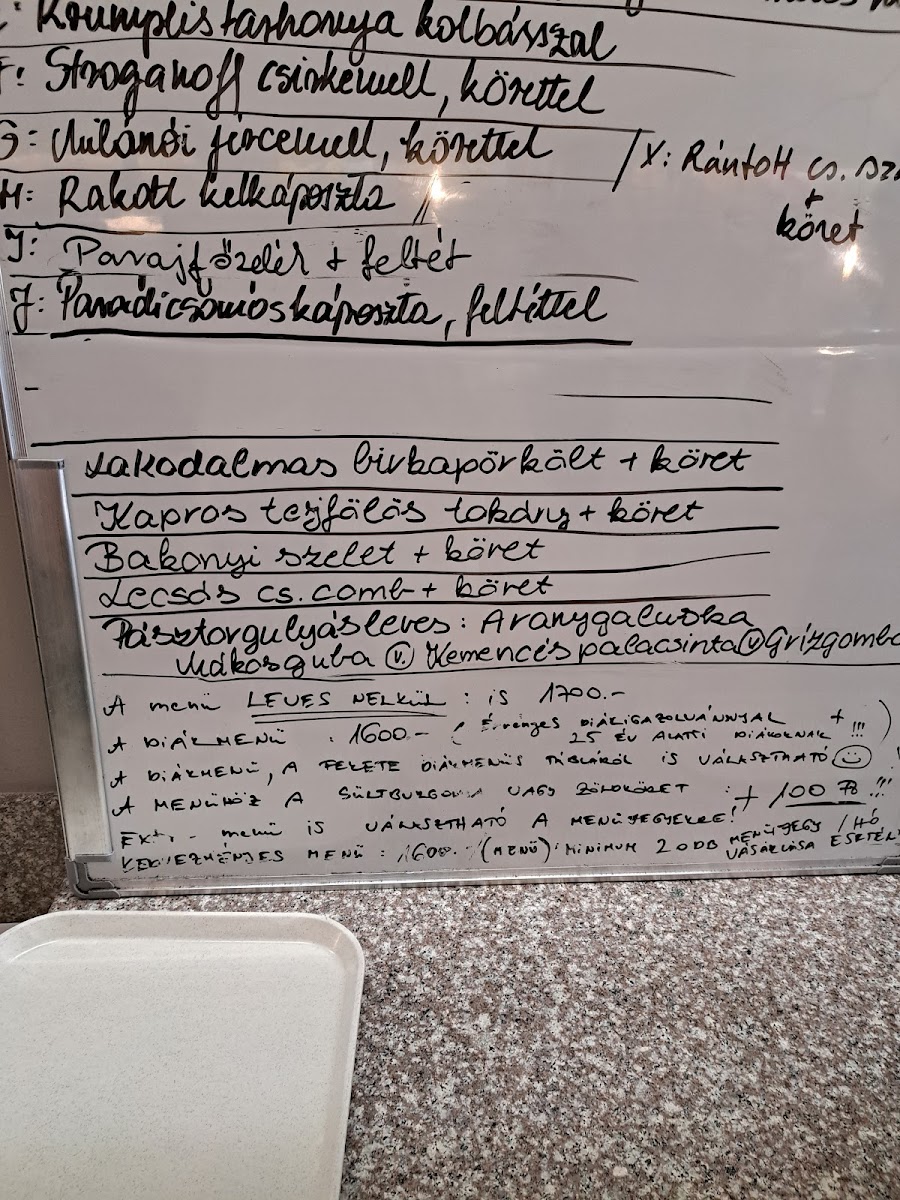 Krumplis tarhonya kolbásszal
F: Stroganoff csirkemell, körettel
G: Milánói jércemell, körettel
X: Rántott cs. sz
+
köret
H: Rakott kelkáposzta
I: Parajfőzelék + feltét
J: Paradicsomoskáposzta, feltéttel
Lakodalmas birkapörkölt + köret
Kapros tejfölös tokány + köret
Bakonyi szelet + köret
Lecsós cs. comb + köret
Pásztorgulyásleves: Aranygaluska
Mákosguba v. Kemencés palacsinta v Grízgombó
A menü LEVES NÉLKÜL : is 1700.-
A DIÁKMENÜ : 1600.- ( Érvényes DIÁKIGAZOLVÁNNYAL +
25 ÉV ALATTI DIÁKOKNAK !!! )
A DIÁKMENÜ, A FEKETE DIÁKMENÜS TÁBLÁRÓL IS VÁLASZTHATÓ
A MENÜKHÖZ A SÜLTBURGONYA VAGY ZÖLDKÖRET : + 100 Ft !!!
Extra menü IS VÁLASZTHATÓ A MENÜJEGYEKRE!
KEDVEZMÉNYES MENÜ : 1600.- (MENÜ) : MINIMUM 20 DB MENÜJEGY / HÓ
VÁSÁRLÁSA ESETÉN